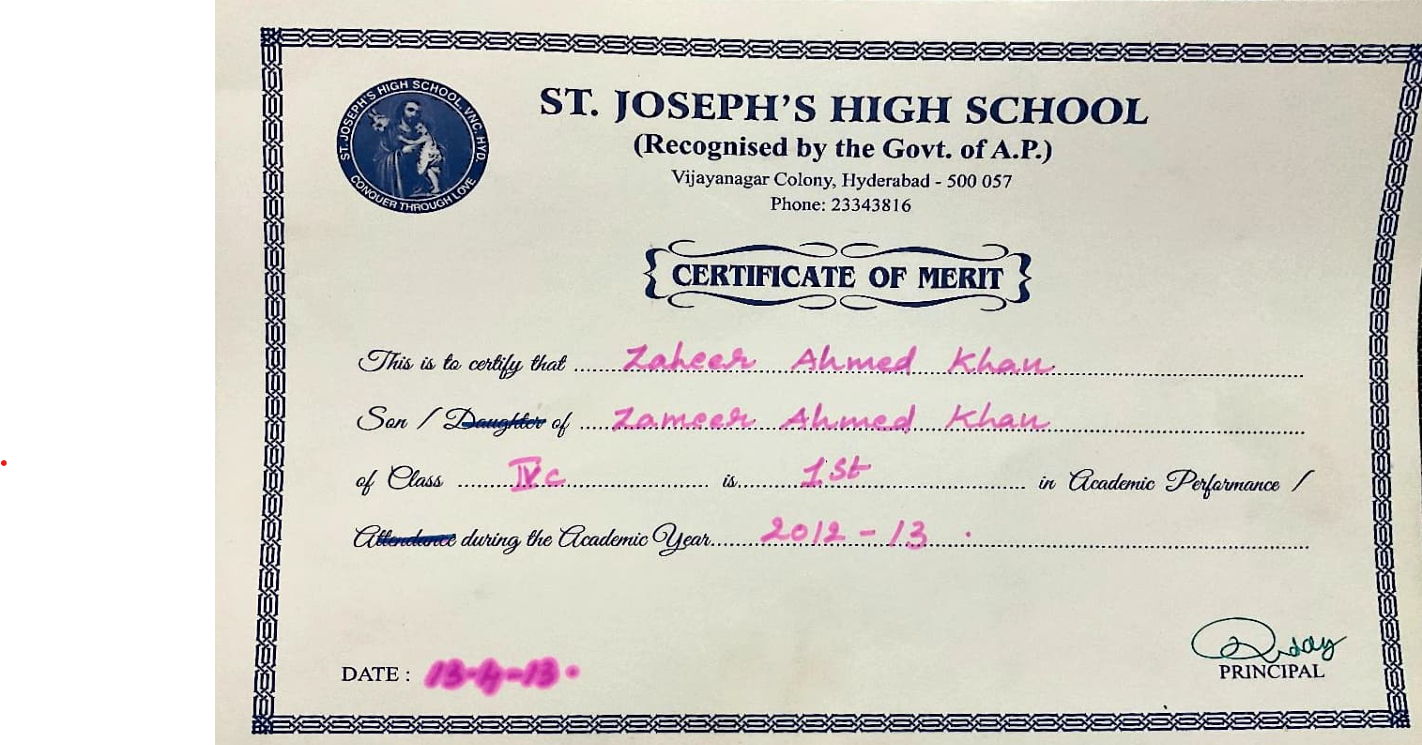 ST. JOSEPH'S HIGH SCHOOL, VNC, HYD.
CONQUER THROUGH LOVE
ST. JOSEPH'S HIGH SCHOOL
(Recognised by the Govt. of A.P.)
Vijayanagar Colony, Hyderabad - 500 057
Phone: 23343816
CERTIFICATE OF MERIT
This is to certify that Zaheer Ahmed Khan
Son / Daughter of Zameer Ahmed Khan
of Class IV c is 1st in Academic Performance /
Attendance during the Academic Year 2012 - 13 .
DATE : 13-4-13.
PRINCIPAL